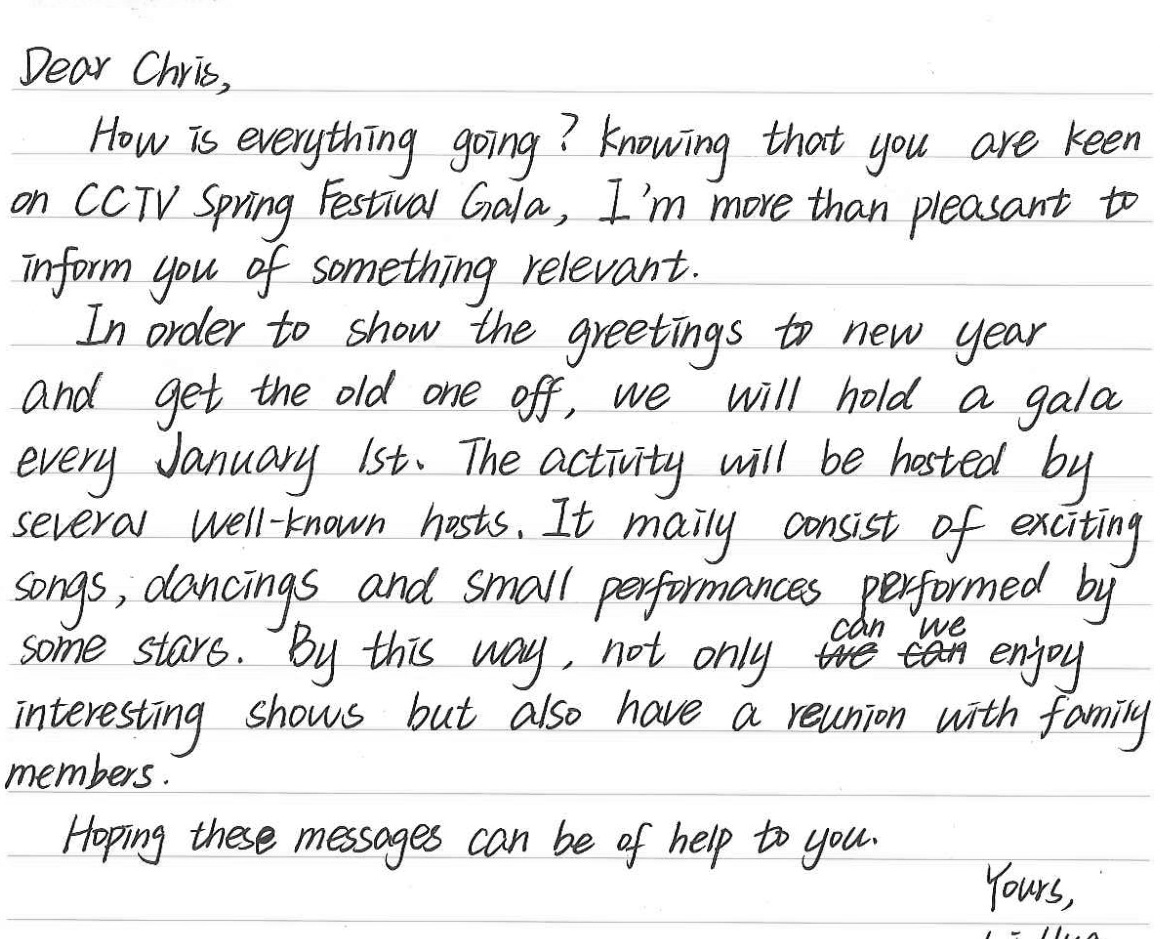 Dear Chris,
How is everything going? Knowing that you are keen
on CCTV Spring Festival Gala, I'm more than pleasant to
inform you of something relevant.
In order to show the greetings to new year
and get the old one off, we will hold a gala
every January 1st. The activity will be hosted by
several well-known hosts. It maily consist of exciting
songs, dancings and small performances performed by
some stars. By this way, not only can we enjoy
interesting shows but also have a reunion with family
members.
Hoping these messages can be of help to you.
Yours,